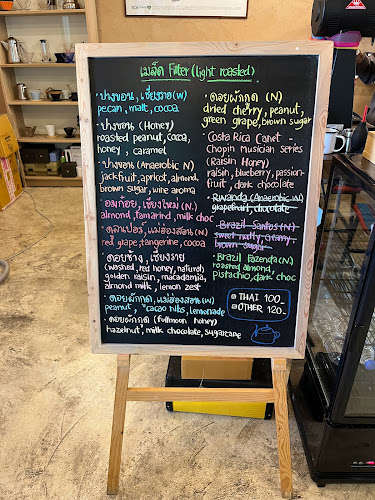 เมล็ด Filter (light roasted)
• ปางขอน, เชียงราย (W)
pecan, malt, cocoa
• ปางขอน (Honey)
roasted peanut, cocoa,
honey, caramel
• ปางขอน (Anaerobic N)
jackfruit, apricot, almond,
brown sugar, wine aroma
• อมก๋อย, เชียงใหม่ (N.)
almond, tamarind, milk choc
• คลาเปอร์, แม่ฮ่องสอน (N)
red grape, tangerine, cocoa
• ดอยช้าง, เชียงราย
(washed, red honey, natural)
golden raisin, macadamia,
almond milk, lemon zest
• ดอยผักกูด, แม่ฮ่องสอน (W)
peanut, cacao nibs, lemonade
• ดอยผักกูด (fullmoon honey)
hazelnut, milk chocolate, sugarcane
• ดอยผักกูด (N)
dried cherry, peanut,
green grape, brown sugar
• Costa Rica Canet -
Chopin musician series
(Raisin Honey)
raisin, blueberry, passion-
fruit, dark chocolate
• Rwanda (Anaerobic W)
grapefruit, chocolate
• Brazil Santos (N)
sweet nutty, creamy,
brown sugar
• Brazil Fazenda (N)
roasted almond,
pistachio, dark choc
THAI 100.-
OTHER 120.-